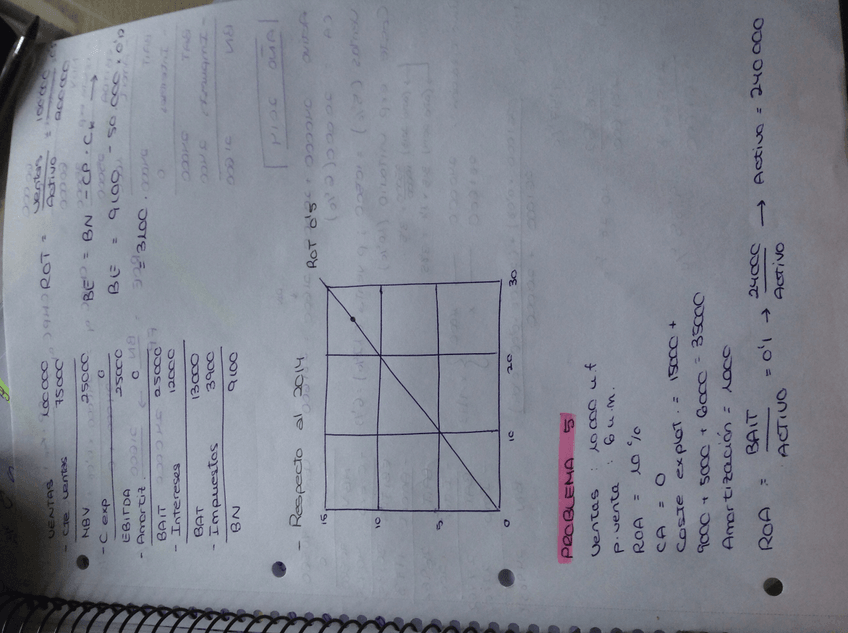 VENTAS 100000
- Cte ventas 75000
MBV 25000
- C exp 0
EBITDA 25000
- Amortiz. 0
BAIT 25000
- Intereses 12000
BAT 13000
- Impuestos 3900
BN 9100
ROT = Ventas / Activo = 100000 / 200000
BE = BN - CP · Ck →
BE = 9100 - 50.000 ·
= 3100.
- Respecto al 2014
ROT 0'5
15
10
5
0
10
20
30
PROBLEMA 5
Ventas: 10000 u f
p. venta: 6 u.m.
ROA = 10%
CA = 0
Coste explot. = 15000 +
9000 + 5000 + 6000 = 35000
Amortización = 1000
ROA = BAIT / ACTIVO = 0'1 → 24000 / Activo → Activo = 240000